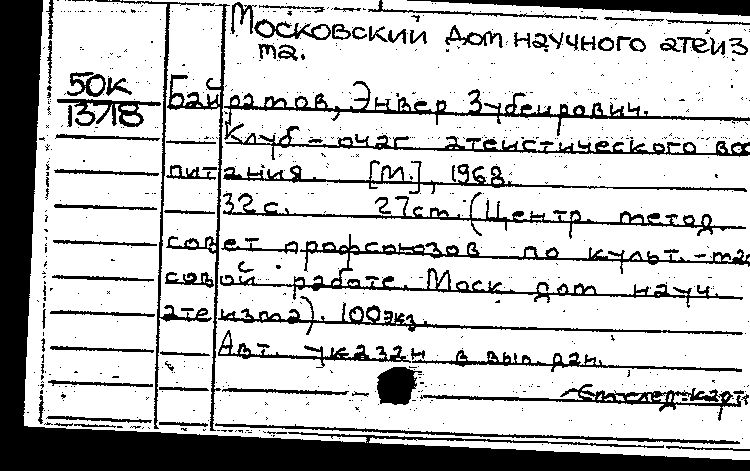 Московский дом научного атеиз
ма.
50К
13718
Байратов, Энвер Зубеирович.
Клуб – очаг атеистического вос
питания. [М.], 1968.
32 с. 27см. (Центр. метод.
совет профсоюзов по культ.-мас
совой работе. Моск. дом науч.
атеизма). 100 экз.
Авт. указан в вып. дан.
См след. карт